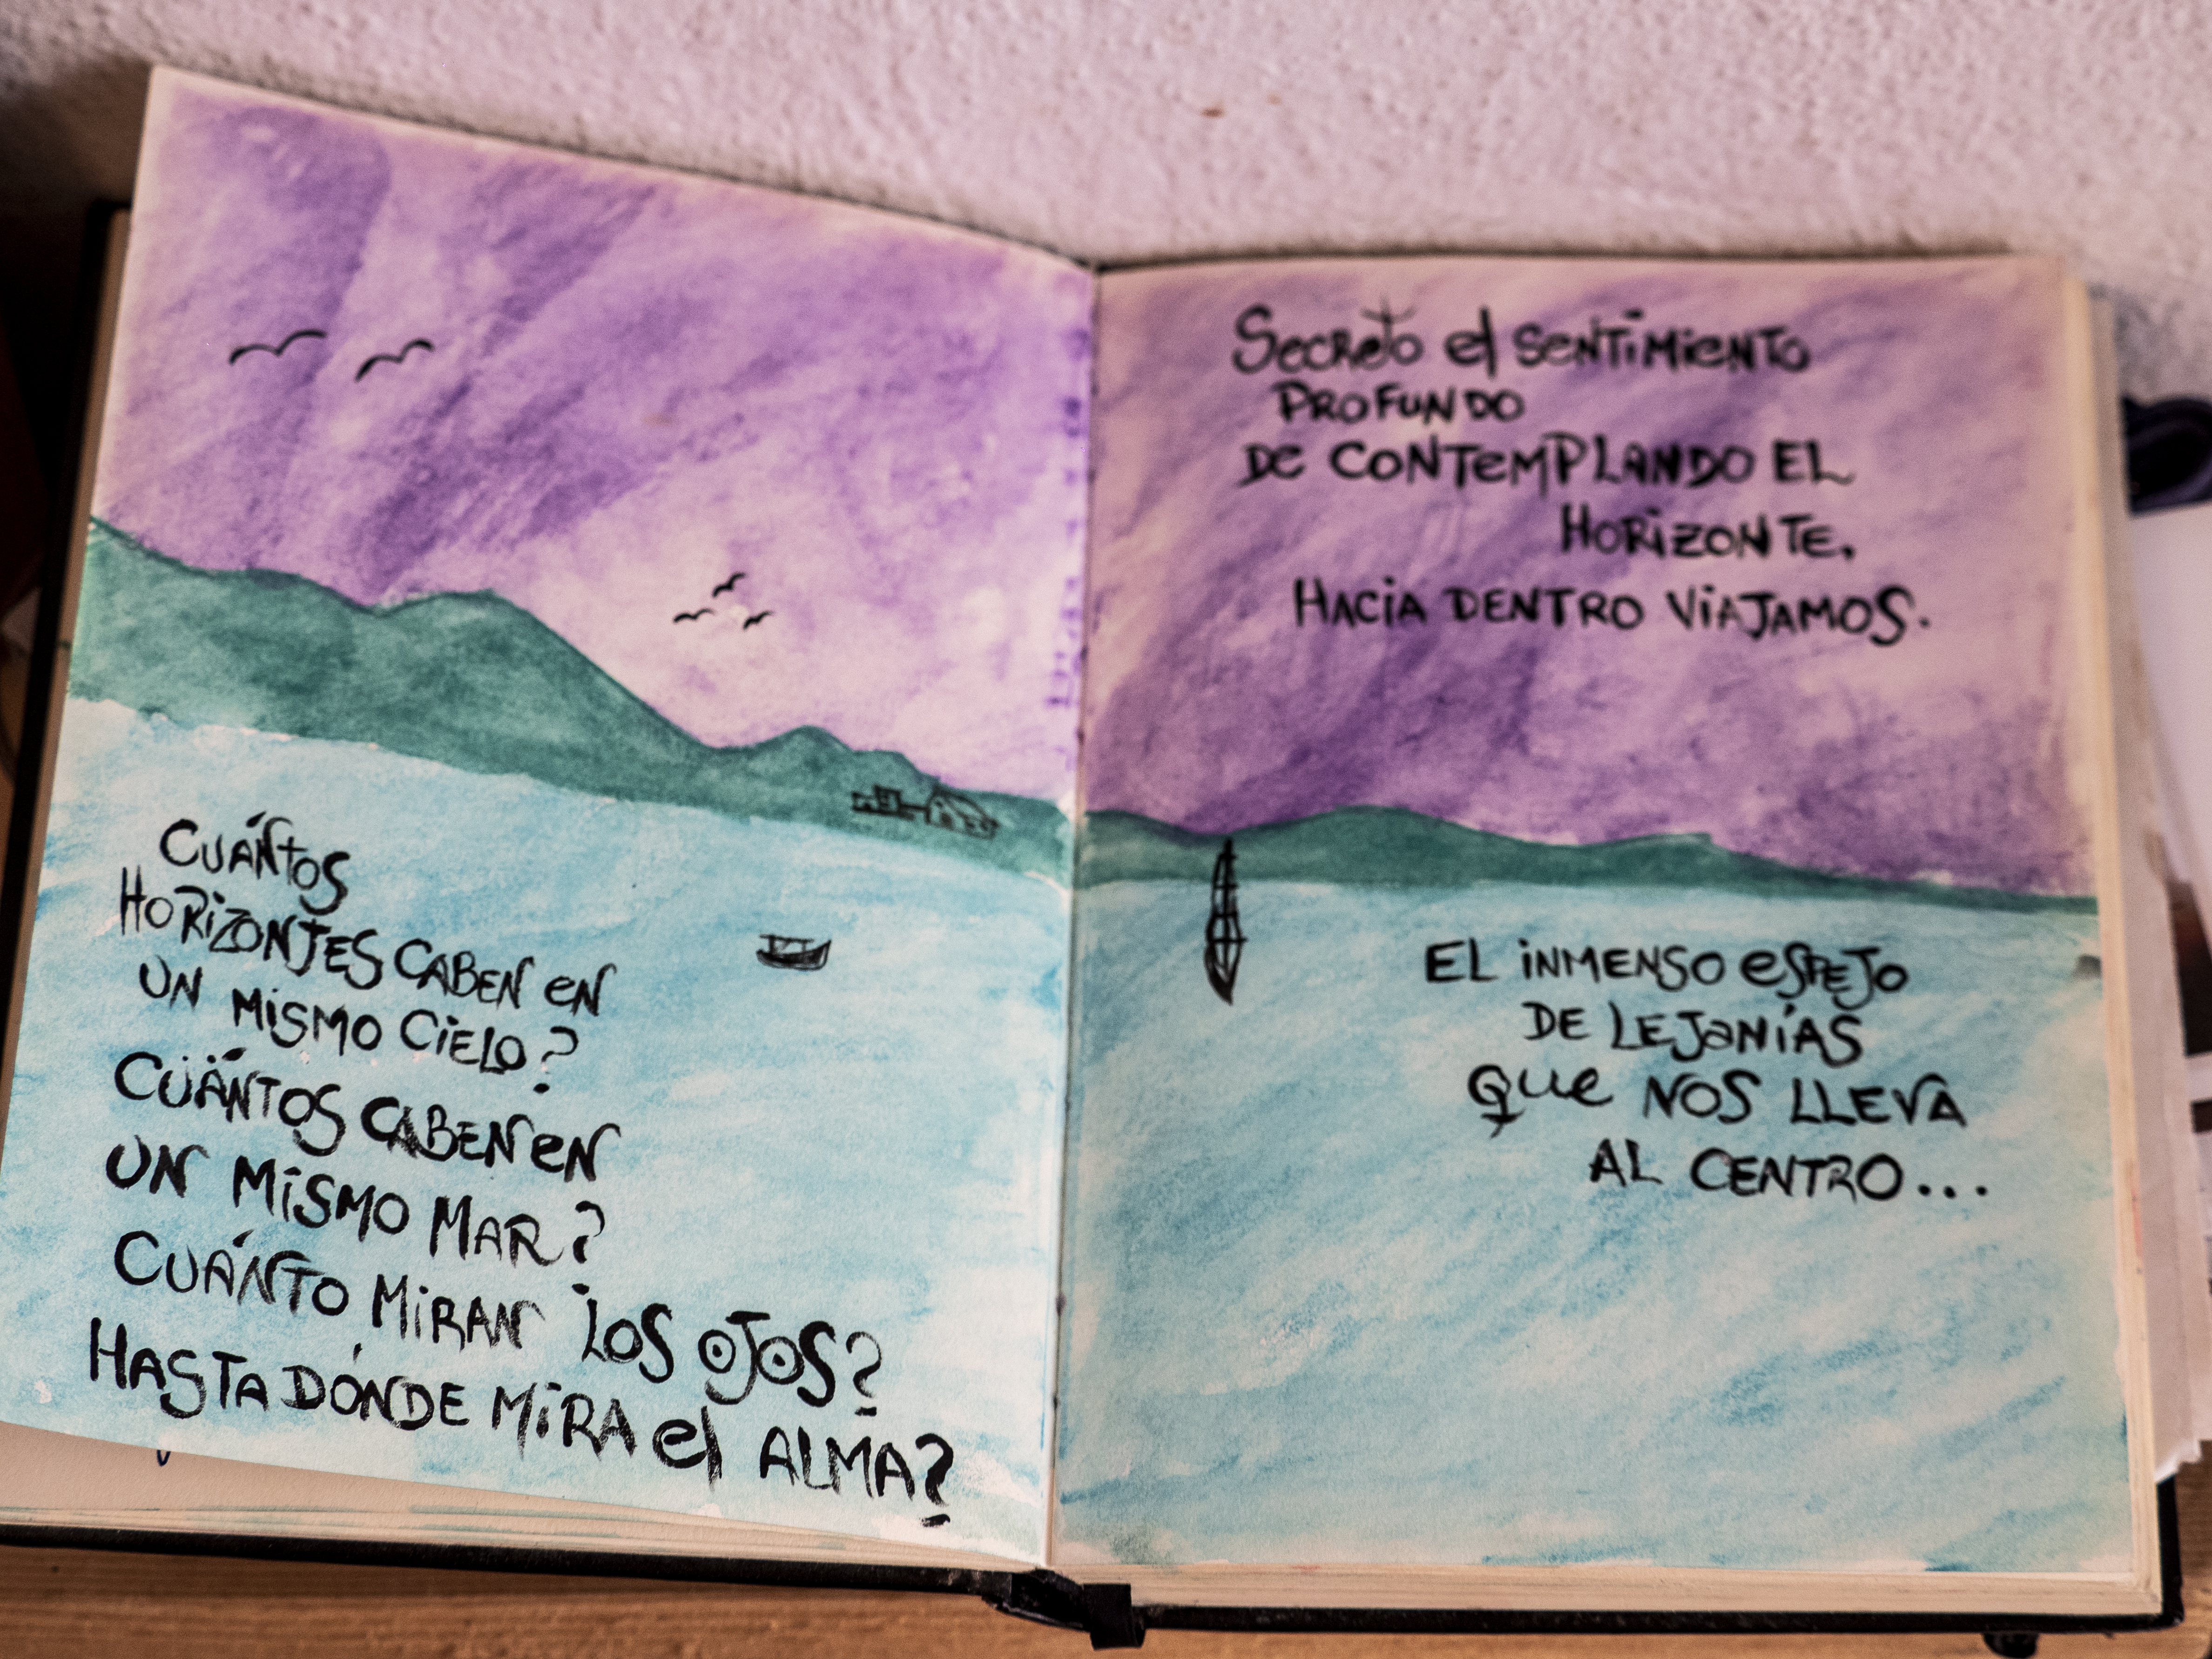 Cuántos
Horizontes caben en
un mismo cielo?
Cuántos caben en
un mismo mar?
Cuánto miran los ojos?
Hasta dónde mira el alma?
Secreto el sentimiento
profundo
de contemplando el
horizonte,
Hacia dentro viajamos.
El inmenso espejo
de lejanías
que nos lleva
al centro...